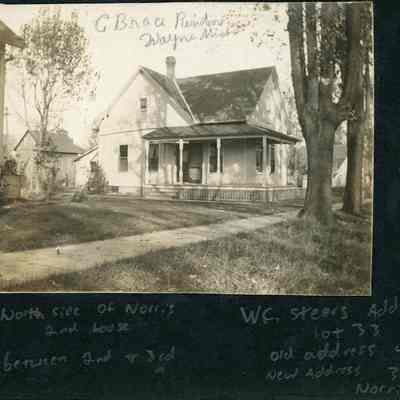 C Brace Residence
Wayne Mich
North side of Norris
2nd house
between 2nd & 3rd
W.C. Steers Add
lot 33
old address
New Address 3
Norris